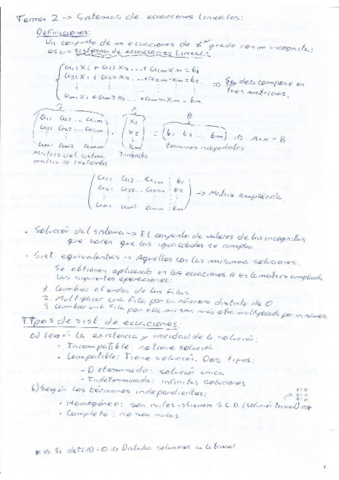 Tema 2 -> Sistemas de ecuaciones lineales:
Definiciones:
Un conjunto de m ecuaciones de 1er grado con n incógnitas
es un sistema de ecuaciones lineales
a11 x1 + a12 x2 ... + a1n xn = b1
a21 x1 + a22 x2 ... + a2n xn = b2
am1 x1 + am2 x2 ... + amn xn = bm
=> Se descompone en
tres matrices.
(a11 a12 ... a1n
a21 a22 ... a2n
am1 am2 ... amn)
(x1
x2
xn)
= (b1 b2 ... bm) => A·x = B
Matriz del sistema
Incógnitas
términos independientes
(a11 a12 ... a1n : b1
a21 a22 ... a2n : b2
am1 am2 amn : bm)
-> Matriz ampliada
• Solución del sistema -> El conjunto de valores de las incógnitas
que hacen que las igualdades se cumplan
• Sist. equivalentes -> Aquellos con las mismas soluciones.
Se obtienen aplicando en las ecuaciones o en la matriz ampliada
las siguientes operaciones:
1 Cambiar el orden de las filas.
2. Multiplicar una fila por un número distinto de 0
3 Cambiar una fila por ella misma más otra multiplicada por un número.
Tipos de sist. de ecuaciones:
a) Según la existencia y unicidad de la solución:
• Incompatible: no tiene solución
• Compatible: Tiene solución. Dos tipos:
- Determinado: solución única
- Indeterminado: infinitas soluciones
b) Según los términos independientes:
• Homogéneo: son nulos - siempre S.C.D (solución trivial)
• Completo: no son nulos
*=> Si det(A)=0 -> Distintas soluciones a la trivial.